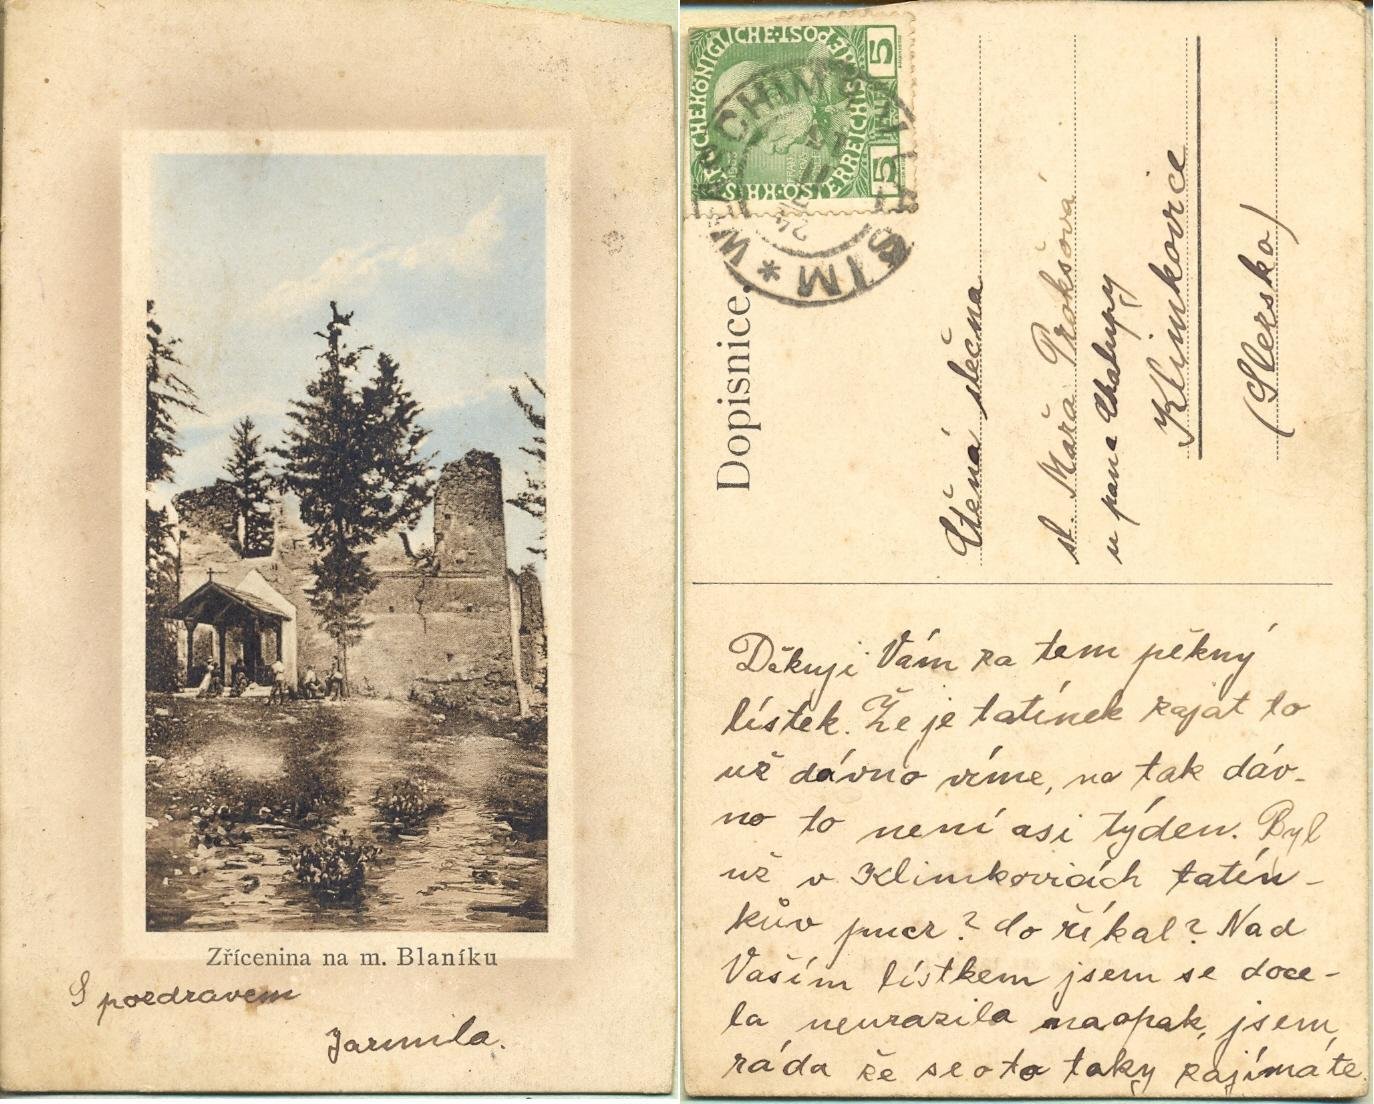 Zřícenina na m. Blaníku
S pozdravem
Jarmila.
Dopisnice.
Ctěná slečna
sl. Mařa Prokšová
u pana Chalupy
Klimkovice
(Slezsko)
Děkuji Vám za tem pěkný
lístek. Že je tatínek zajat to
už dávno víme, no tak dáv-
no to není asi týden. Byl
už v Klimkovicích tatín-
kův pucr? co říkal? Nad
Vaším lístkem jsem se doce-
la neurazila naopak, jsem
ráda že se o to taky zajímáte.
5
5